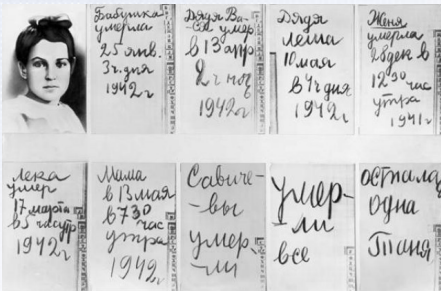 Бабушка
умерла
25 янв.
3ч. дня
1942г
Дядя Ва-
ся умер
в 13 апр
2ч ноч
1942г
Дядя
Леша
10 мая
в 4ч дня
1942г
Женя
умерла
28 дек в
12 00 час
утра
1941г
Лека
умер
17 марта
в 5 час утр
1942г
Мама
в 13 мая
в 7 30
час
утра
1942г
Савиче-
-вы
умер-
-ли
умер-
-ли
все
Осталась
одна
Таня